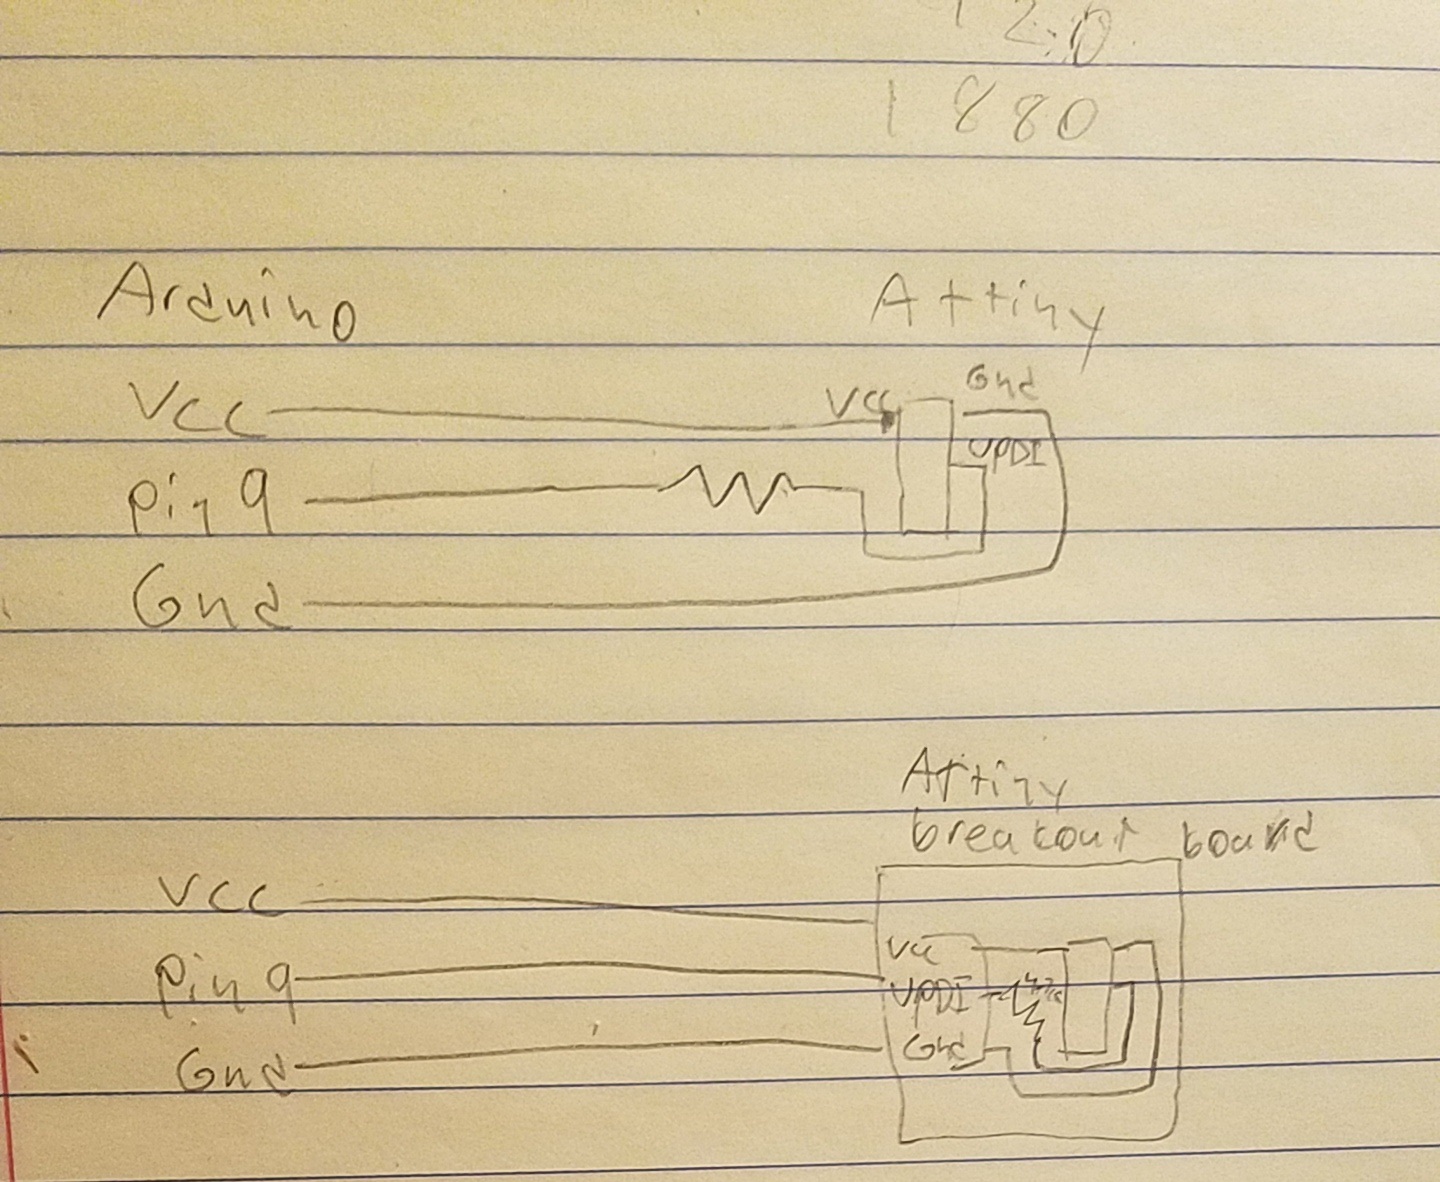 1880
Arduino
Attiny
Vcc
Vcc
Gnd
UPDI
Pin 9
Gnd
Attiny
breakout board
Vcc
Vcc
Pin 9
UPDI
4.7k
Gnd
Gnd